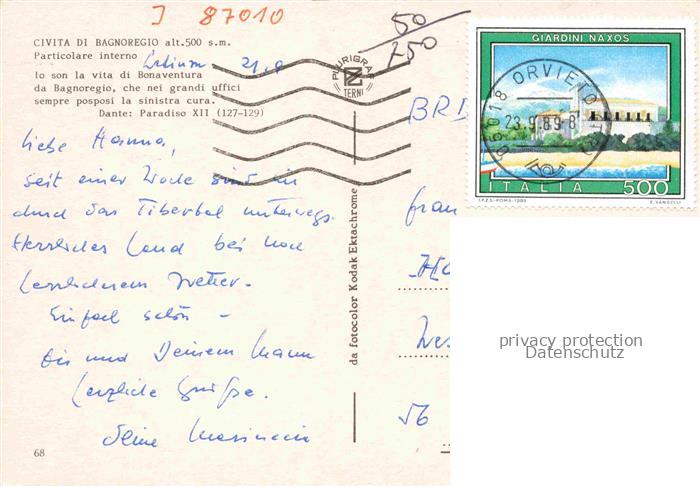 J 87010
50
250
CIVITA DI BAGNOREGIO alt.500 s.m.
Particolare interno
21.9
Io son la vita di Bonaventura
da Bagnoregio, che nei grandi uffici
sempre posposi la sinistra cura.
Dante: Paradiso XII (127-129)
PLURIGRAF
TERNI
Liebe Hanna,
seit einer Woche sind wir
durch das Tibertal unterwegs.
Herrliches Land bei noch
herrlicherem Wetter.
Einfach schön -
Dir und Deinem Mann
herzliche Grüße.
Deine
68
da fotocolor Kodak Ektachrome
GIARDINI NAXOS
ITALIA 500
I.P.Z.S.-ROMA-1989
E. VANGELLI
05018 ORVIETO (TR)
23.9.89-8
BRD
Frau
56
privacy protection
Datenschutz